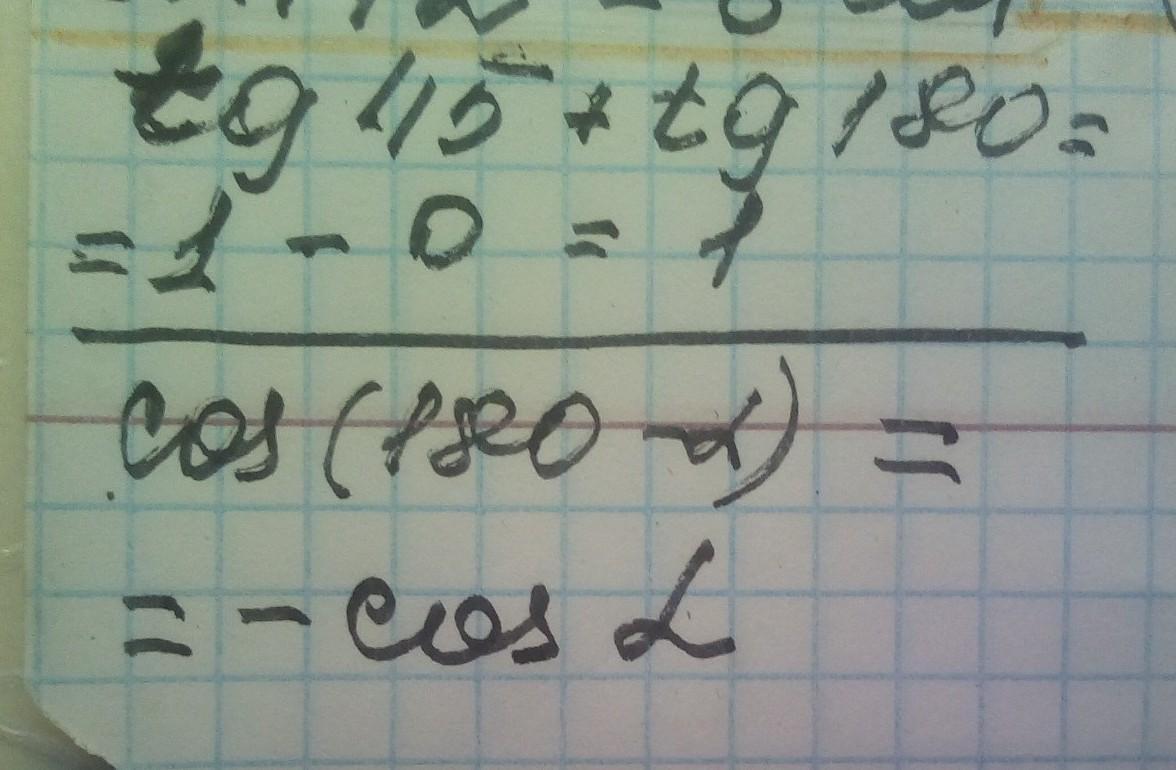 tg 45 + tg 180 =
= 1 - 0 = 1
cos (180 - α) =
= - cos α